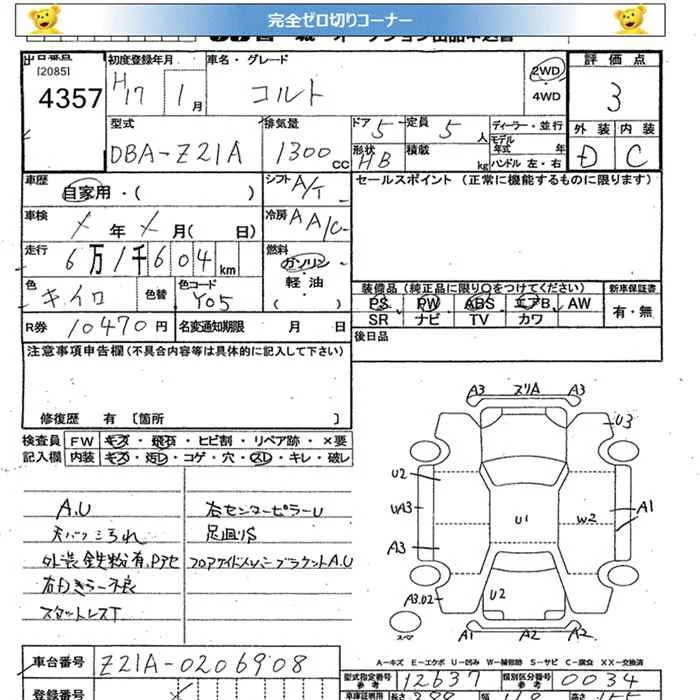 完全ゼロ切りコーナー
[2085]
4357
初度登録年月
H17 1月
車名・グレード
コルト
2WD
・
4WD
評価点
3
型式
DBA-Z21A
排気量
1300cc
ドア 5
定員 5人
ディーラー・並行
形状 HB
積載 kg
モデル年式 年
ハンドル 左・右
外装 内装
D C
車歴 自家用・( )
シフト A/T
セールスポイント (正常に機能するものに限ります)
車検 年 月( 日)
冷房 AA/C
走行 6万1千604km
燃料
ガソリン
・
軽油
( )
色 キイロ
色替
色コード Y05
装備品 (純正品に限り○をつけてください)
新車保証書
PS PW ABS エアB AW
SR ナビ TV カワ
有・無
R券 10470円
名変通知期限 月 日
後日品
注意事項申告欄(不具合内容等は具体的に記入して下さい)
修復歴 有 〔箇所 〕
検査員 FW キズ・飛石・ヒビ割・リペア跡・×要
記入欄 内装 キズ・汚レ・コゲ・穴・スレ・キレ・破レ
A.U
外装鉄粉有、Pアセ
右センターピラーU
足回りS
A3 スリA A3
U3
U2
UA3
A3
A3.U2
U1
W2
A1
U2
A1 A2 A2
A-キズ E-エクボ U-凹み W-補修跡 S-サビ C-腐食 XX-交換済
車台番号 Z21A-0206908
型式指定番号 参考 12637
類別区分番号 参考 0034
登録番号